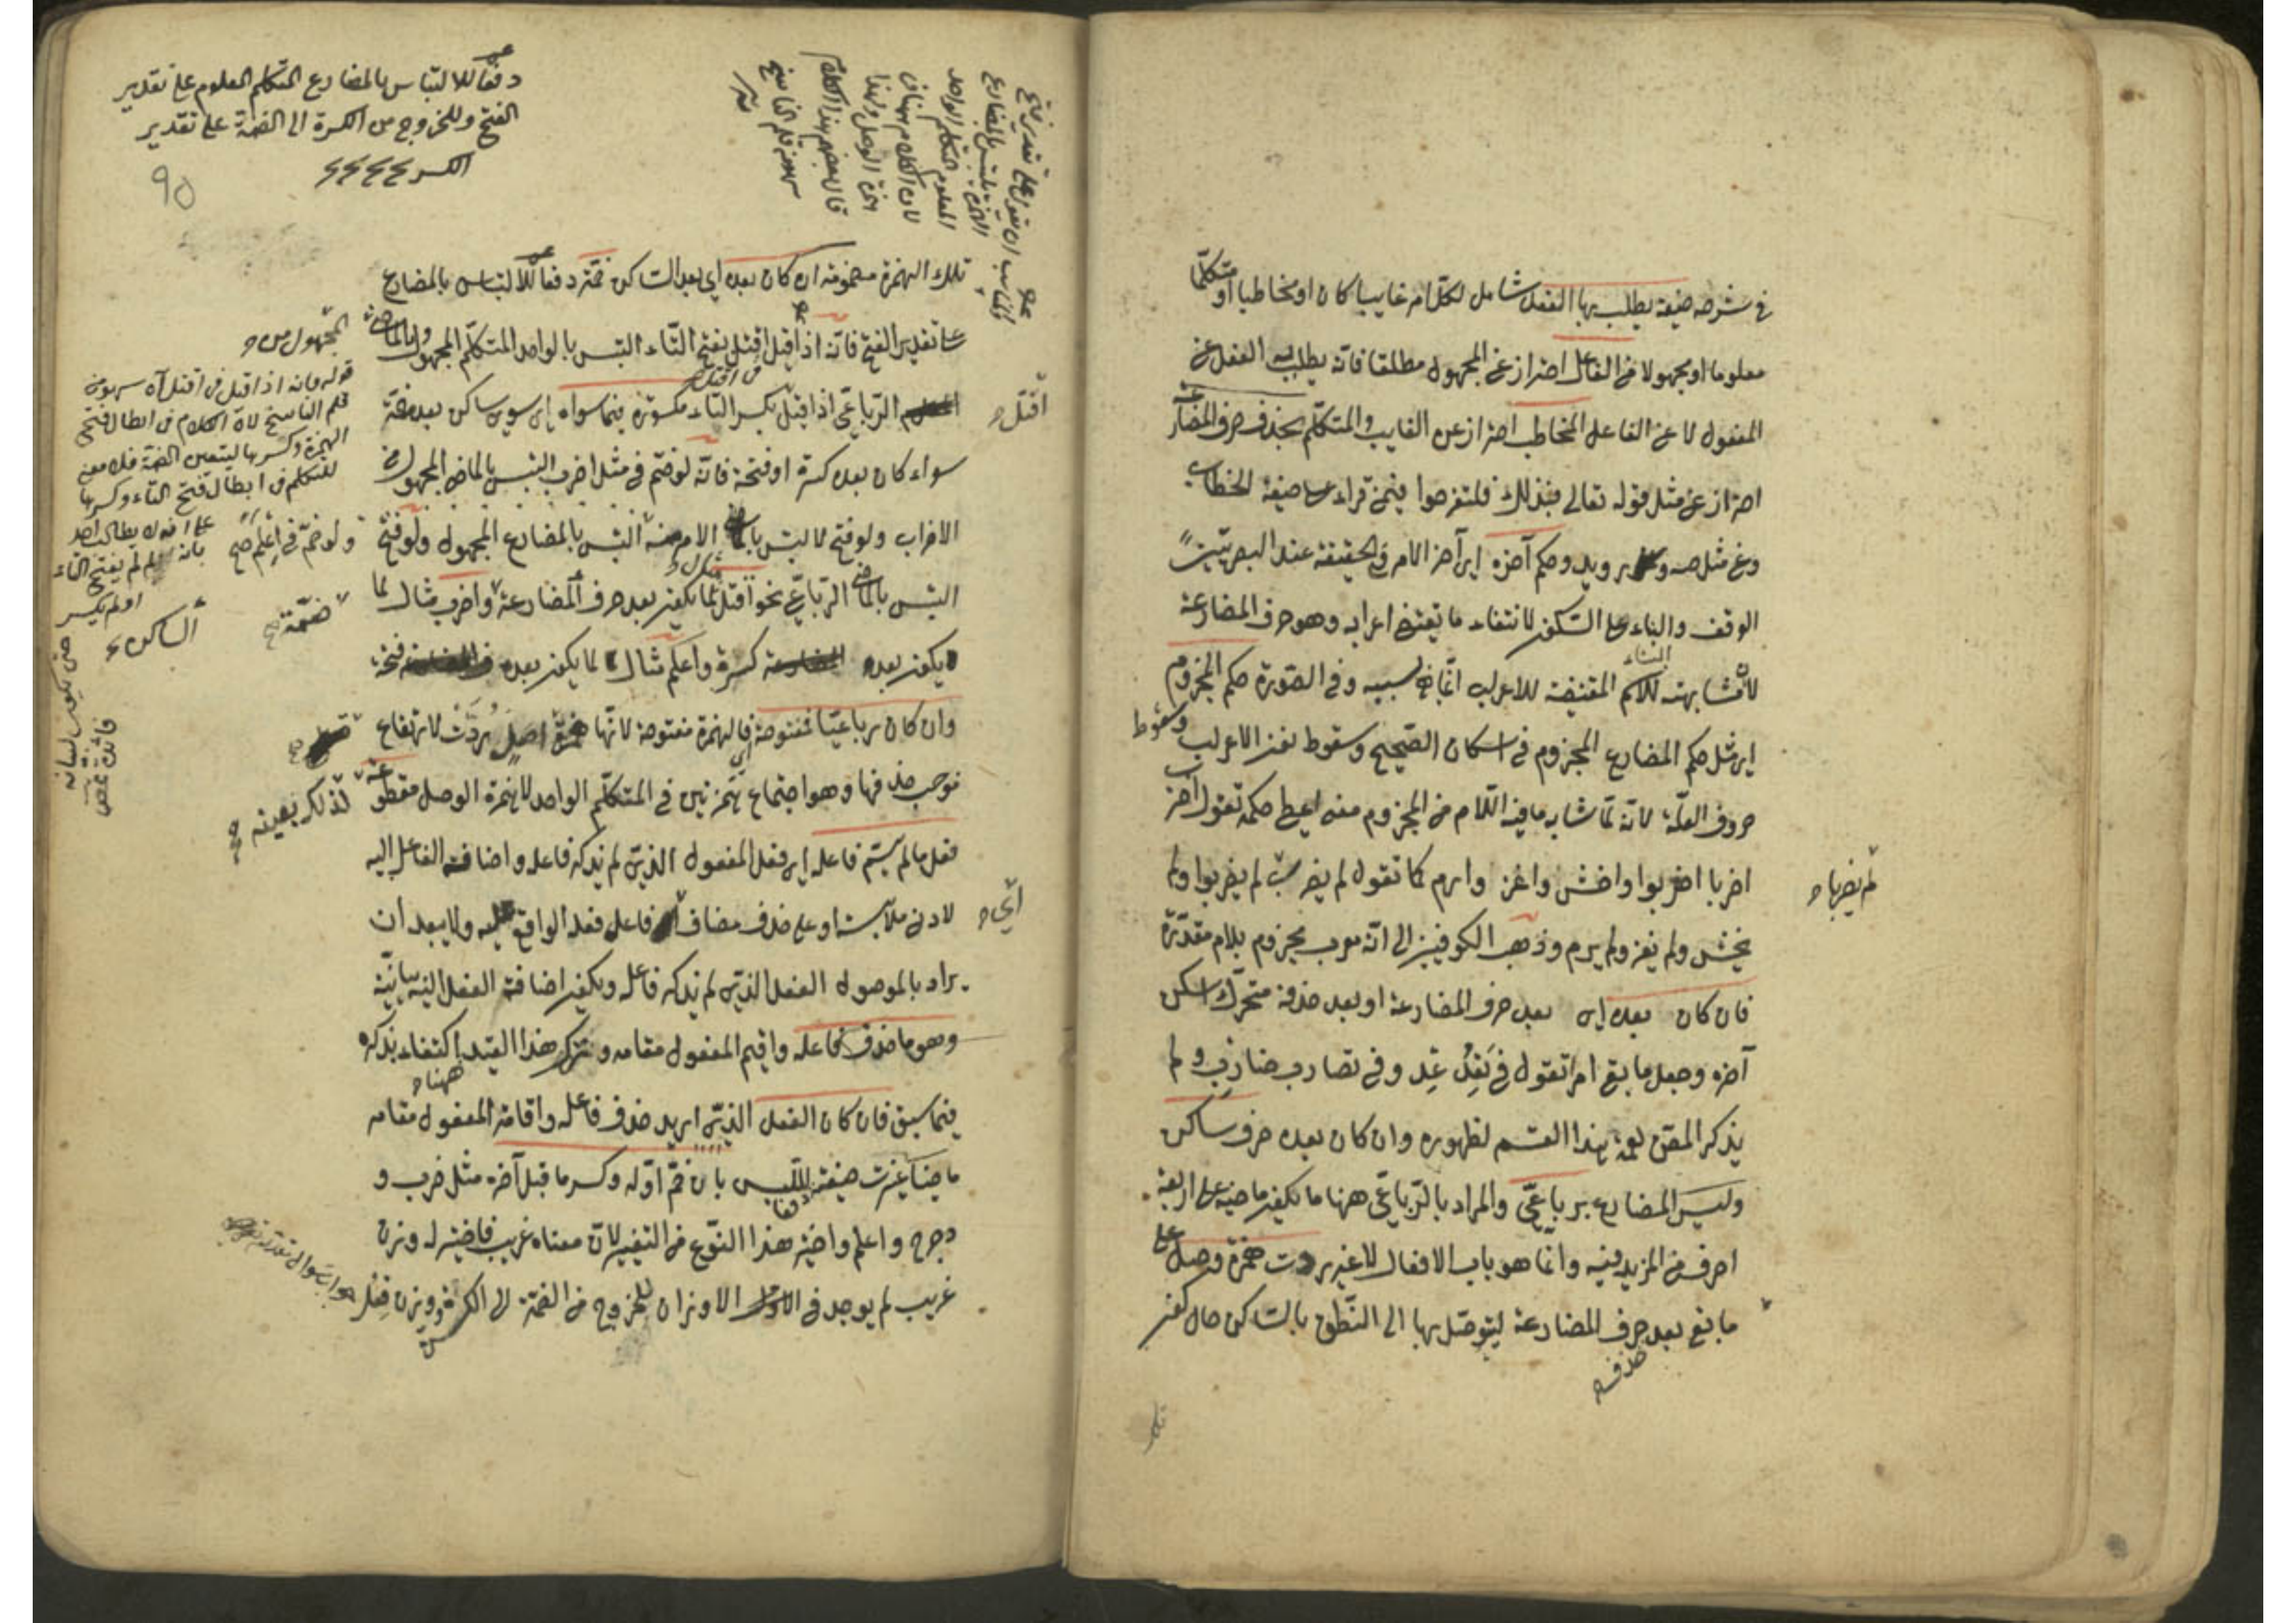 في شرحه صيغة يطلب بها الفعل شامل لكل امر غايبا كان او مخاطبا او متكلّما
معلوما او مجهولا من الفاعل احتراز عن المجهول مطلقا فانه يطلب به الفعل عن
المفعول لا عن الفاعل المخاطب احتراز عن الغايب والمتكلّم بحذف حرف المضارعة
احتراز عن مثل قوله تعالى فبذلك فلتفرحوا فيمن قراء على صيغة الخطاب
وعن مثل صه و رويد وحكم آخره اي آخر الامر في الحقيقة عند البصريّين
الوقف والبناء على السكون لانتفاء ما يقتضى اعرابه وهو حرف المضارعة
لان مشابهته للاسم المقتضية للاعراب انّما هي بسببه وفي الصّورة حكم المجزوم
اي مثل حكم المضارع المجزوم في اسكان الصّحيح وسقوط نون الاعراب وسقوط
حروف العلّة لانّه لمّا شابه ما فيه اللّام من المجزوم معنى اعطى حكمه تقول اضرب
اضربا اضربوا واخش واغز وارم كما تقول لم يضرب لم يضربوا ولم
لم يضربا
يخش ولم يغز ولم يرم وذهب الكوفيين الى انّه معرب مجزوم بلام مقدّرة
فان كان بعده اي بعد حرف المضارعة او بعد حذفه متحرّك اسكن
آخره وجعل ما بقي امرا تقول في تَعِدُ عِد وفي تضارب ضارِب ولم
يذكر المصنّ هذا القسم لظهوره وان كان بعده حرف ساكن
وليس المضارع برباعيّ والمراد بالرّباعيّ ههنا ما يكون ماضيه على اربعة
احرف من المزيد فيه وانما هو باب الافعال لا غير زدت همزة وصل على
ما بقي بعد حرف المضارعة ليتوصّل بها الى النّطق بالساكن حال كون
حذف
دفعا للالتباس بالمضارع المتكلم المعلوم على تقدير
الفتح وللخروج من الكسرة الى الضمة على تقدير
الكسر
90
تلك الهمزة مضمومة ان كان بعده اي بعد الساكن ضمّة دفعا للالتباس بالمضارع
على تقدير الفتح فانّه اذا قيل اقتل بفتح التّاء التبس بالواحد المتكلّم المجهول وبالماضي
الرّباعيّ اذا قيل بكسر التاء مكسورة فيما سواه اي سوى ساكن بعده ضمّة
اقتل
سواء كان بعده كسرة او فتحة فانّه لو ضمّ في مثل اضرب التبس بالماضي المجهول من
الاضراب ولو فتح لالتبس بالامر منه التبس بالمضارع المجهول ولو فتح
ولو ضمّ في اعلم
التبس بالماضي الرّباعيّ نحو اقتل لما يكون بعد حرف المضارعة واضرب مثال لما
ضمّة
يكون بعده كسرة واعلم مثال لما يكون بعده فتحة
وان كان رباعيّا فمفتوحة اي فالهمزة مفتوحة لانّها همزة اصل رُدَّتْ لارتفاع
موجب حذفها وهو اجتماع همزتين في المتكلّم الواحد لا همزة الوصل مقطوعة
لذلك بعينه
فعل ما لم يسمّ فاعله اي فعل المفعول الذي لم يذكر فاعله واضافة الفاعل اليه
لادنى ملابسة او على حذف مضاف اي فاعل فعل الواقع عليه ولا يبعد أن
يراد بالموصول الفعل الذي لم يذكر فاعله ويكون اضافة الفعل اليه بيانيّة
وهو ما حذف فاعله واقيم المفعول مقامه و ترك هذا القيد اكتفاء بذكره
ههنا
فيما سبق فان كان الفعل الذي اريد حذف فاعله واقامة المفعول مقامه
ماضيا غيّرت صيغته لللّبس بان ضمّ اوّله وكسر ما قبل آخره مثل ضرب و
دحرج واعلم واختير هذا النّوع من التغيير لانّ معناه غريب فاختير له وزن
غريب لم يوجد في الاوزان للخروج من الضمّة الى الكسرة ووزن فعل
المجهول من
قوله فانه اذا قيل في اقتل آه سهو من
قلم الناسخ لان الكلام في ابطال فتح
الهمزة وكسرها ليتعين الضمة فلا معنى
للتكلم في ابطال فتح التاء وكسرها
الساكن
جواب سؤال